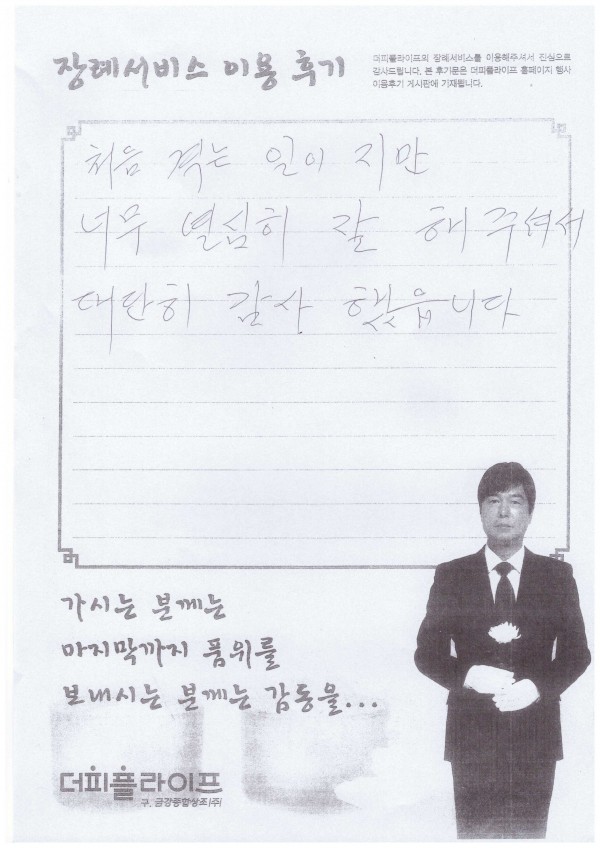 장례서비스 이용 후기
더피플라이프의 장례서비스를 이용해주셔서 진심으로
감사드립니다. 본 후기문은 더피플라이프 홈페이지 행사
이용후기 게시판에 기재됩니다.
처음 격는 일이 지만
너무 열심히 잘 해 주셔서
대단히 감사 했읍니다
가시는 분께는
마지막까지 품위를
보내시는 분께는 감동을...
더피플라이프
구, 금강종합상조(주)